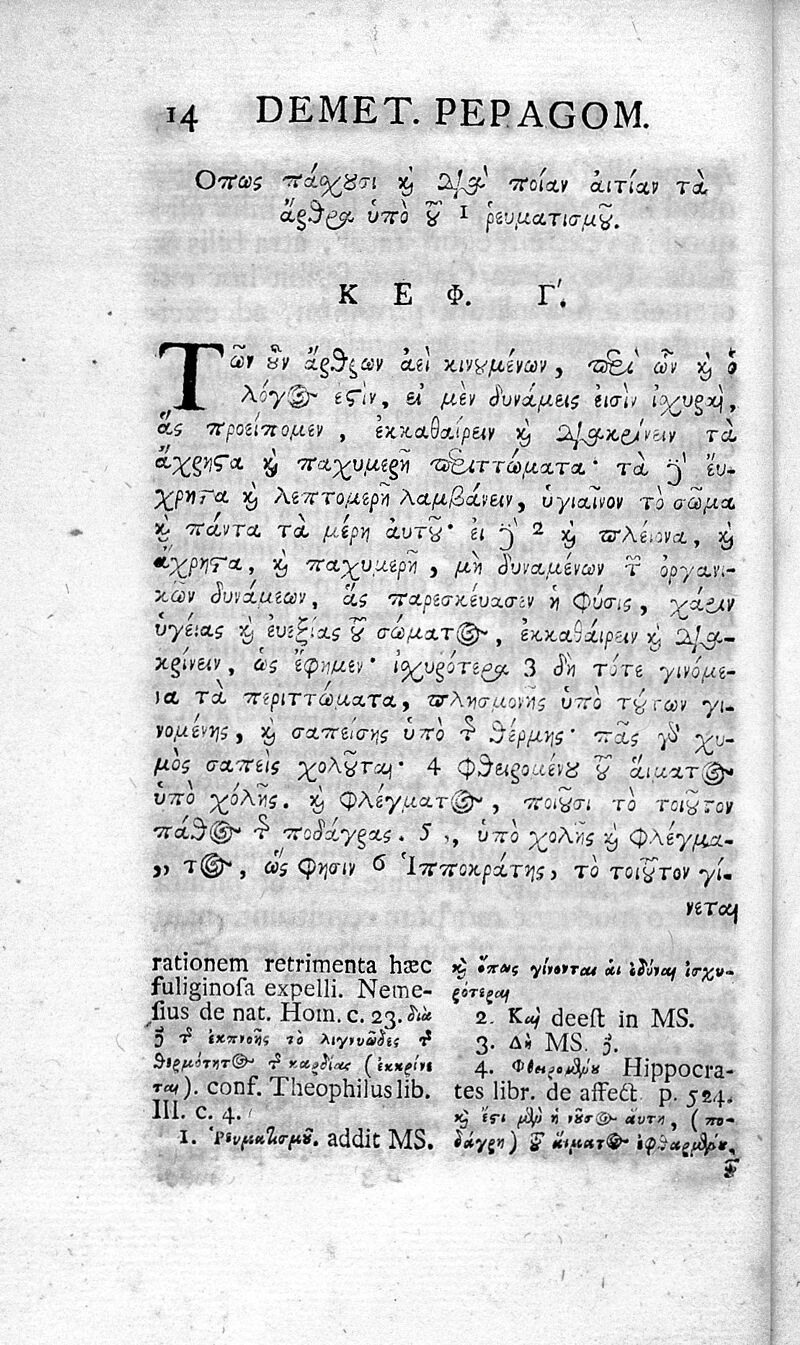 14 DEMET. PEPAGOM.
Οπως πάχουσι καὶ διὰ ποίαν ἀιτίαν τὰ
ἄρθρα ὑπὸ τοῦ 1 ῥευματισμοῦ.
Κ Ε Φ. Γ'.
Τῶν οὖν ἄρθρων ἀεὶ κινουμένων, περὶ ὧν καὶ ὁ
λόγος ἐστὶν, εἰ μὲν δυνάμεις εισὶν ἰχυραὶ,
ἅς προείπομεν, ἐκκαθαίρειν καὶ διακρίνειν τὰ
ἄχρηστα καὶ παχυμερῆ περιττώματα· τὰ δὲ ἔυ-
χρηστα καὶ λεπτομερῆ λαμβάνειν, ὑγιαῖνον τὸ σῶμα
καὶ πάντα τὰ μέρη ἀυτοῦ· εἰ δὲ 2 καὶ πλείονα, καὶ
ἄχρηστα, καὶ παχυμερῆ, μὴ δυναμένων τῶν ὀργανι-
κῶν δυνάμεων, ἅς παρεσκέυασεν ἡ φύσις, χάριν
ὑγείας καὶ ἐυεξίας τοῦ σώματος, ἐκκαθάιρειν καὶ δια-
κρίνειν, ὡς ἔφημεν· ἰχυρότερα 3 δὴ τότε γινόμε-
να τὰ περιττώματα, πλησμονῆς ὑπὸ τούτων γι-
νομένης, καὶ σαπείσης ὑπὸ τῆς θέρμης· πᾶς γὰρ χυ-
μὸς σαπεὶς χολοῦται· 4 φθειρομένου τοῦ ἅιματος
ὑπὸ χόλῆς. καὶ φλέγματος, ποιοῦσι τὸ τοιοῦτον
πάθος τῆς ποδάγρας. 5 ,, ὑπὸ χολῆς καὶ φλέγμα-
,, τος, ὥς φησιν 6 Ἱπποκράτης, τὸ τοιοῦτον γί-
νεται
rationem retrimenta hæc
fuliginosa expelli. Neme-
sius de nat. Hom. c. 23. διὰ
δὲ τῆς ἐκπνοῆς τὸ λιγνυῶδες τῆς
θερμότητος τῆς καρδίας (ἐκκρίνε
ται). conf. Theophilus lib.
III. c. 4.
1. Ῥευματισμοῦ. addit MS.
καὶ ὅπως γίνονται ἁι ὀδύναι ἰσχυ-
ρότεραι
2. Καὶ deest in MS.
3. Δὴ MS. δὲ.
4. Φθειρομένου Hippocra-
tes libr. de affect. p. 524.
καὶ ἔστι μὲν ἡ νοῦσος ἅυτη, (πο-
δάγρη) τοῦ ἅιματος ἐφθαρμένου,
τοῦ